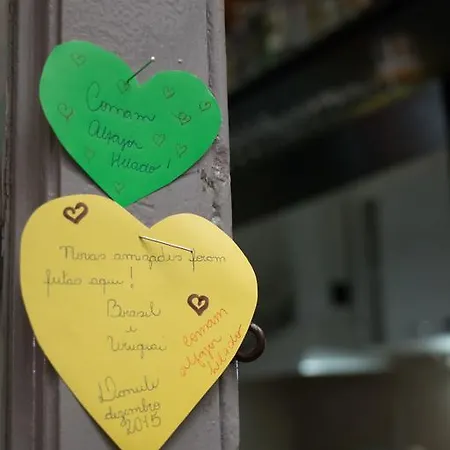 Comam
Alfajor
Helado!
Novas amizades foram
feitas aqui!
Brasil
e
Uruguai
comam
alfajor
helado
dezembro
2015